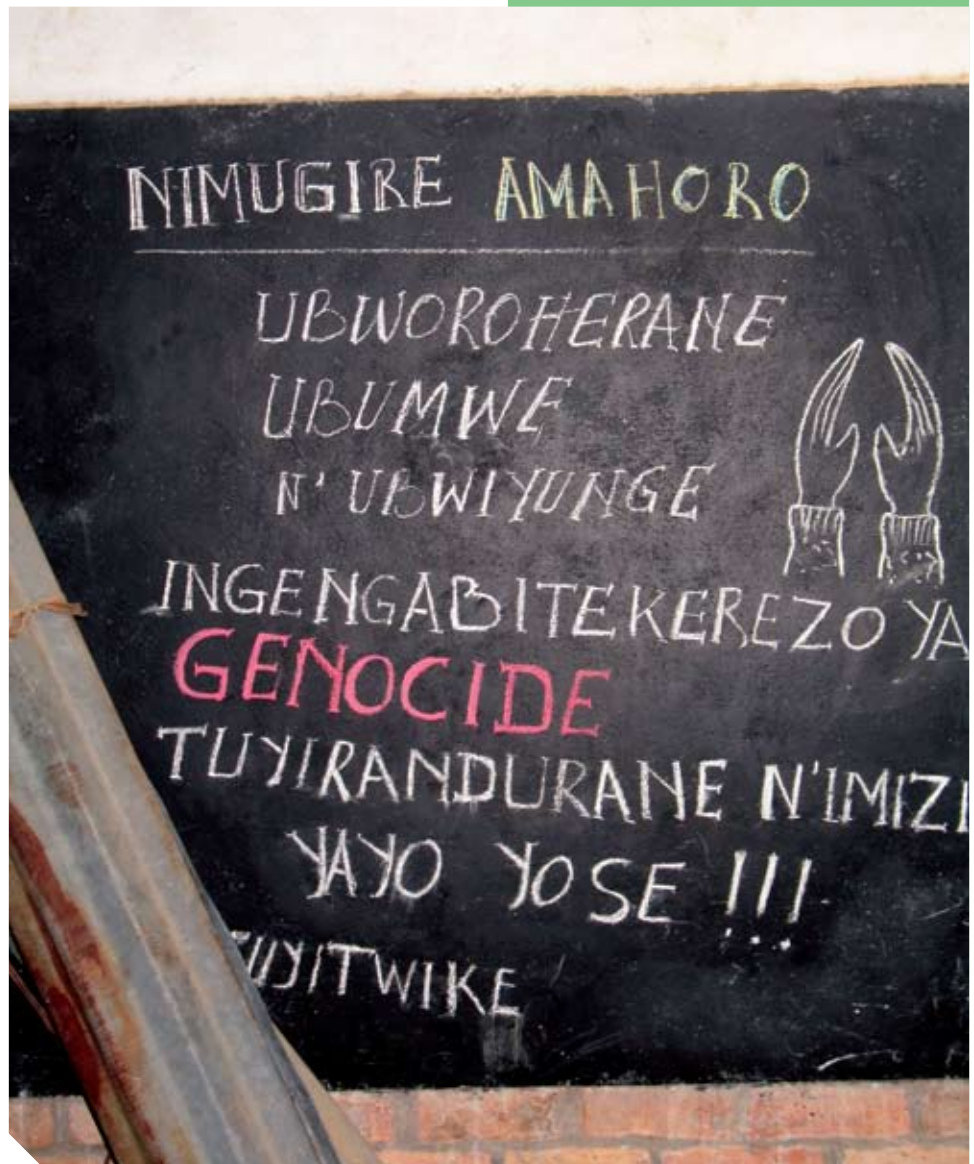 NIMUGIRE AMAHORO
UBWOROHERANE
UBUMWE
N'UBWIYUNGE
INGENGABITEKEREZO YA
GENOCIDE
TUYIRANDURANE N'IMIZI
YAYO YOSE !!!
TUYITWIKE